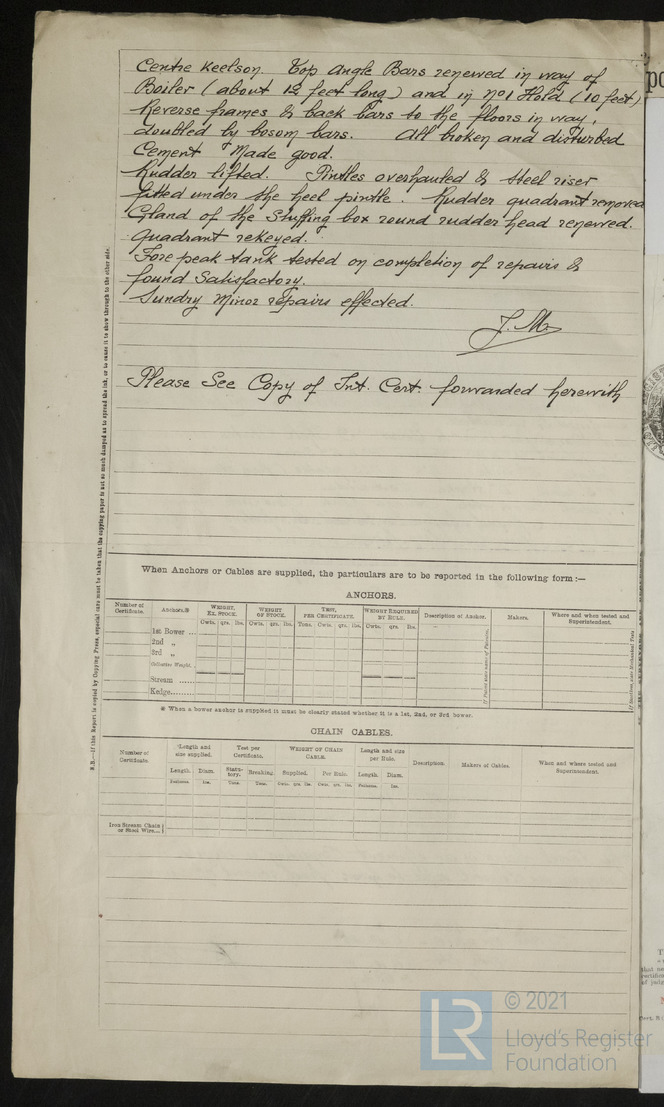 Centre Keelson. Top Angle Bars renewed in way of
Boiler (about 12 feet long) and in No1 Hold (10 feet)
Reverse frames & back bars to the floors in way,
doubled by bosom bars. All broken and disturbed
Cement Made good.
Rudder lifted. Pintles overhauled & steel riser
fitted under the heel pintle. Rudder quadrant removed
Gland of the Stuffing box round rudder head renewed.
Quadrant rekeyed.
Fore peak tank tested on completion of repairs &
found Satisfactory.
Sundry Minor repairs effected.
J. M.
Please See Copy of Int. Cert. forwarded herewith
N.B.—If this Report is copied by Copying Press, especial care must be taken that the copying paper is not so much damped as to spread the ink, or to cause it to show through to the other side.
When Anchors or Cables are supplied, the particulars are to be reported in the following form :—
ANCHORS.
Number of Certificate. Anchors.※ WEIGHT, EX. STOCK. WEIGHT OF STOCK. TEST, PER CERTIFICATE. WEIGHT REQUIRED BY RULE. Description of Anchor. Makers. Where and when tested and Superintendent.
Cwts. qrs. lbs. Cwts. qrs. lbs. Tons. Cwts. qrs. lbs. Cwts. qrs. lbs.
1st Bower ...
2nd „
3rd „
Collective Weight.
Stream ......
Kedge.........
※ When a bower anchor is supplied it must be clearly stated whether it is a 1st, 2nd, or 3rd bower.
CHAIN CABLES.
Number of Certificate. Length and size supplied. Test per Certificate. WEIGHT OF CHAIN CABLE. Length and size per Rule. Description. Makers of Cables. When and where tested and Superintendent.
Length. Diam. Statutory. Breaking. Supplied. Per Rule. Length. Diam.
Fathoms. Ins. Tons. Tons. Cwts. qrs. lbs. Cwts. qrs. lbs. Fathoms. Ins.
Iron Stream Chain or Steel Wire...
LR
© 2021
Lloyd's Register
Foundation